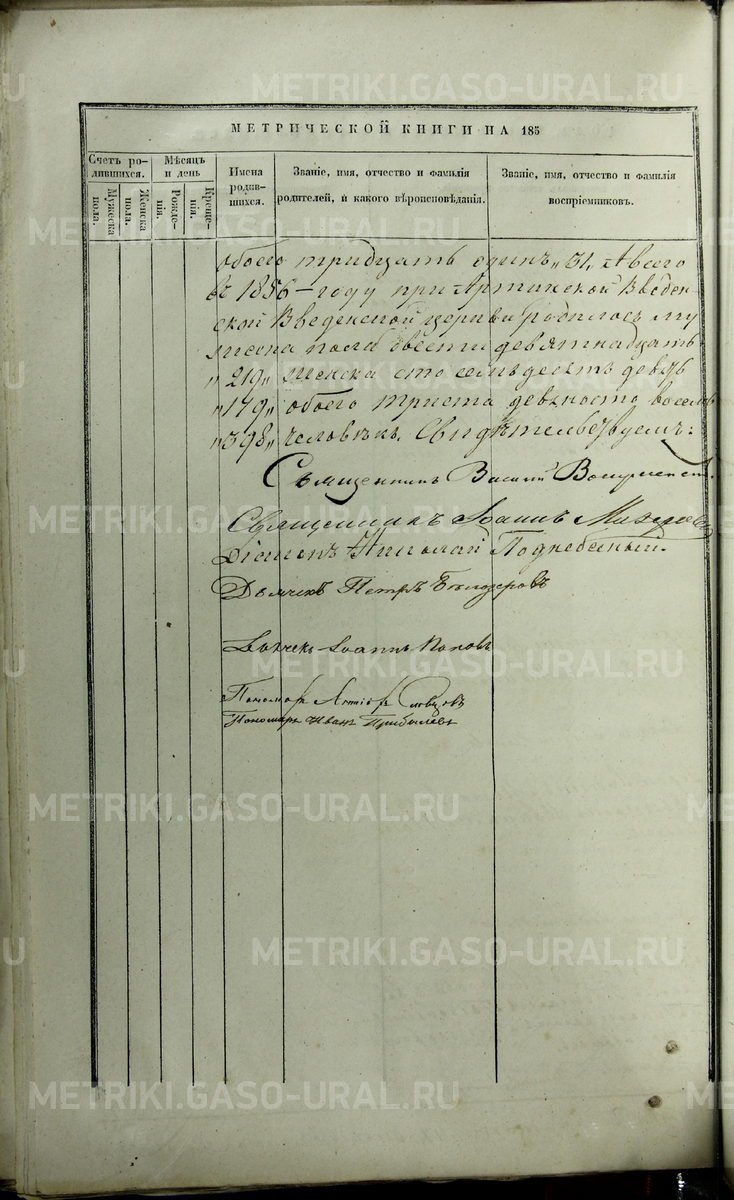 METRIKI.GASO-URAL.RU
МЕТРИЧЕСКОЙ КНИГИ НА 185
Счетъ родившихся.
Мужеска пола.
Женска пола.
Мѣсяцъ и день
Рожденія.
Крещенія.
Имена родившихся.
Званіе, имя, отчество и фамилія родителей, и какого вѣроисповѣданія.
Званіе, имя, отчество и фамилія воспріемниковъ.
обоего тридцать одинъ „31„ А всего
въ 1856 – году при Артинской Введен-
ской Введенской церкви родилось му
жеска пола двести девятнадцать
„219„ женска сто семьдесятъ девять
„179„ обоего триста девяносто восемь
„398„ человѣкъ. Свидѣтельствуемъ:
Священникъ Василій
Священникъ Іоаннъ
Діаконъ Николай Поднебесный.
Дьячекъ Петръ Бѣлозеровъ
Дьячекъ Іоаннъ Поповъ
Пономарь Словцовъ
Пономарь Иванъ Прибылевъ